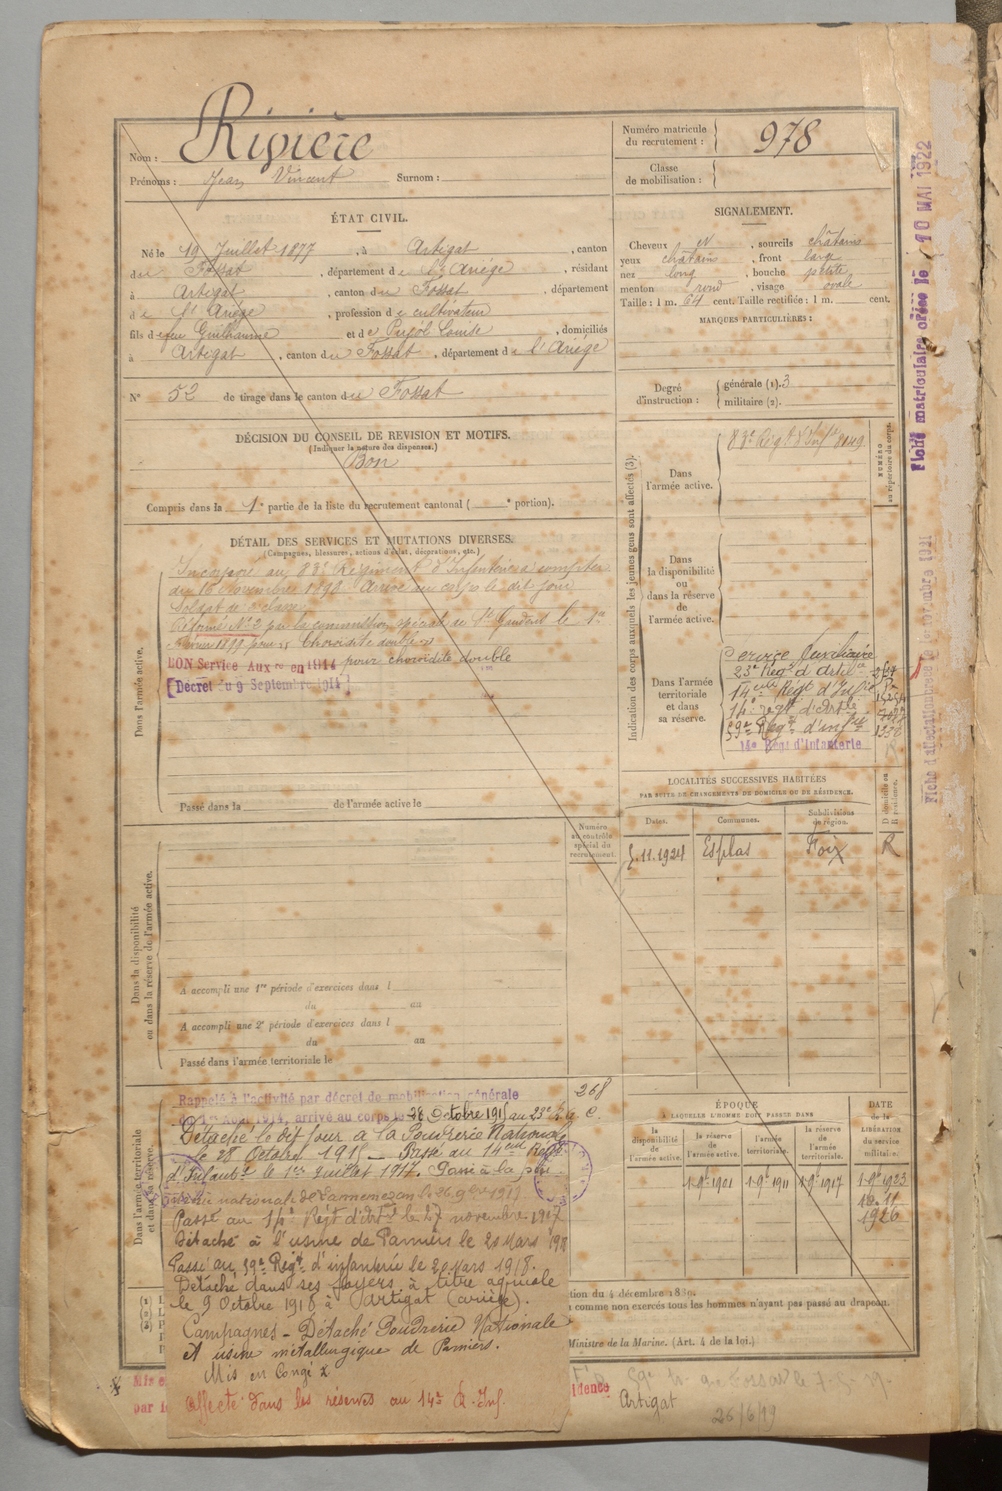 Nom : Rivière
Prénoms : Jean Vincent Surnom :
Numéro matricule du recrutement : 978
Classe de mobilisation :
ÉTAT CIVIL.
Né le 19 Juillet 1877, à Artigat, canton
du Fossat, département de l'Ariège, résidant
à Artigat, canton du Fossat, département
de l'Ariège, profession de cultivateur
fils de feu Guilhaume et de Pujol Louise, domiciliés
à Artigat, canton du Fossat, département de l'Ariége
N° 52 de tirage dans le canton du Fossat
DÉCISION DU CONSEIL DE REVISION ET MOTIFS.
(Indiquer la nature des dispenses.)
Bon
Compris dans la 1e partie de la liste du recrutement cantonal ( e portion).
SIGNALEMENT.
Cheveux , sourcils châtains
yeux chatains, front large
nez long, bouche petite
menton rond, visage ovale
Taille : 1 m. 64 cent. Taille rectifiée : 1 m. cent.
MARQUES PARTICULIÈRES :
Degré d'instruction : générale (1). 3
militaire (2).
DÉTAIL DES SERVICES ET MUTATIONS DIVERSES.
(Campagnes, blessures, actions d'éclat, décorations, etc.)
Dans l'armée active.
Incorporé au 83e Régiment d'Infanterie à compter
du 16 Novembre 1898. Arrivé au corps le dit jour
Soldat de 2e classe
Réformé N° 2 par la commission spéciale de St Gaudens le 1er
1899 pour choroidite double
BON Service Auxre en 1914 pour choroidite double
[Décret du 9 Septembre 1914]
Passé dans la de l'armée active le
Indication des corps auxquels les jeunes gens sont affectés (3).
NUMÉRO au répertoire du corps.
Dans l'armée active.
83e Régt d'Infie 8049
Dans la disponibilité ou dans la réserve de l'armée active.
Dans l'armée territoriale et dans sa réserve.
Service Auxiliaire
23e Régt d'Artille
14eme Régt d'Infie
14e régt d'Artle
59e Régt d'infie 1336
14e Régt d'Infanterie
LOCALITÉS SUCCESSIVES HABITÉES
PAR SUITE DE CHANGEMENTS DE DOMICILE OU DE RÉSIDENCE.
Dates. Communes. Subdivisions de région. D domicile ou R résidence.
5.11.1924 Esplas Foix R
Numéro au contrôle spécial du recrutement.
268
Dans la disponibilité ou dans la réserve de l'armée active.
A accompli une 1re période d'exercices dans l
du au
A accompli une 2e période d'exercices dans l
du au
Passé dans l'armée territoriale le
Dans l'armée territoriale et dans sa réserve.
Rappelé à l'activité par décret de mobilisation générale
1914, arrivé au corps le 28 Octobre 1915 au 23e
Détaché le dit jour à la Poudrerie Nationale
le 28 Octobre 1915 - Passé au 14eme Régt
d'Infanie le 1er Juillet 1917. Passé à la pou
Passé au 14e Régt d'Artie le 27 novembre 1917
Détaché à l'usine de Pamiers le 20 Mars 1918
Passé au 59e Régt d'infanterie le 20 Mars 1918.
Détaché dans ses foyers à titre agricole
le 9 Octobre 1918 à Artigat (Ariège).
Campagnes - Détaché Poudrerie Nationale
et usine métallurgique de Pamiers.
Mis en Congé
Affecté dans les réserves au 14e R. Inf.
ÉPOQUE
À LAQUELLE L'HOMME DOIT PASSER DANS
la disponibilité de l'armée active.
la réserve de l'armée active.
l'armée territoriale.
la réserve de l'armée territoriale.
DATE de la LIBÉRATION du service militaire.
1-9bre 1901 1-9bre 1911 1-9bre 1917 1-9bre 1923
1926
tion du 4 décembre 1889.
comme non exercés tous les hommes n'ayant pas passé au drapeau.
Ministre de la Marine. (Art. 4 de la loi.)
par l
idence
Artigat
26/6/19
Fiche matriculaire créée le 10 MAI 1922